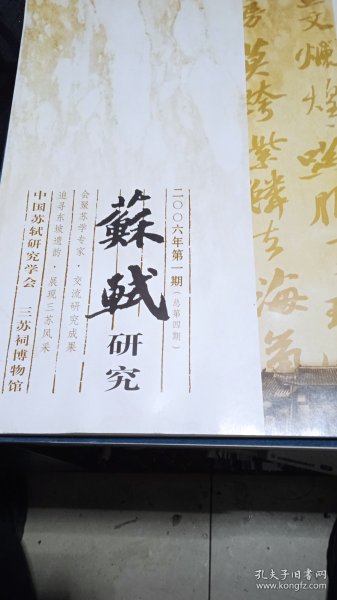 二〇〇六年第一期（总第四期）
蘇軾研究
会聚苏学专家·交流研究成果
追寻东坡遗韵·展现三苏风采
中国苏轼研究学会 三苏祠博物馆
文爛
英跨紫麟去海
孔夫子旧书网